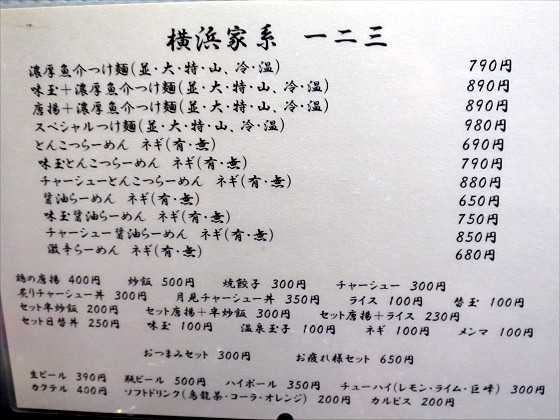 横浜家系 一二三
濃厚魚介つけ麺(並・大・特・山、冷・温) 790円
味玉+濃厚魚介つけ麺(並・大・特・山、冷・温) 890円
唐揚+濃厚魚介つけ麺(並・大・特・山、冷・温) 890円
スペシャルつけ麺(並・大・特・山、冷・温) 980円
とんこつらーめん ネギ(有・無) 690円
味玉とんこつらーめん ネギ(有・無) 790円
チャーシューとんこつらーめん ネギ(有・無) 880円
醤油らーめん ネギ(有・無) 650円
味玉醤油らーめん ネギ(有・無) 750円
チャーシュー醤油らーめん ネギ(有・無) 850円
激辛らーめん ネギ(有・無) 680円
鶏の唐揚 400円 炒飯 500円 焼餃子 300円 チャーシュー 300円
炙りチャーシュー丼 300円 月見チャーシュー丼 350円 ライス 100円 替玉 100円
セット半炒飯 200円 セット唐揚+半炒飯 300円 セット唐揚+ライス 230円
セット日替丼 250円 味玉 100円 温泉玉子 100円 ネギ 100円 メンマ 100円
おつまみセット 300円 お疲れ様セット 650円
生ビール 390円 瓶ビール 500円 ハイボール 350円 チューハイ(レモン・ライム・巨峰) 300円
カクテル 400円 ソフトドリンク(烏龍茶・コーラ・オレンジ) 200円 カルピス 200円